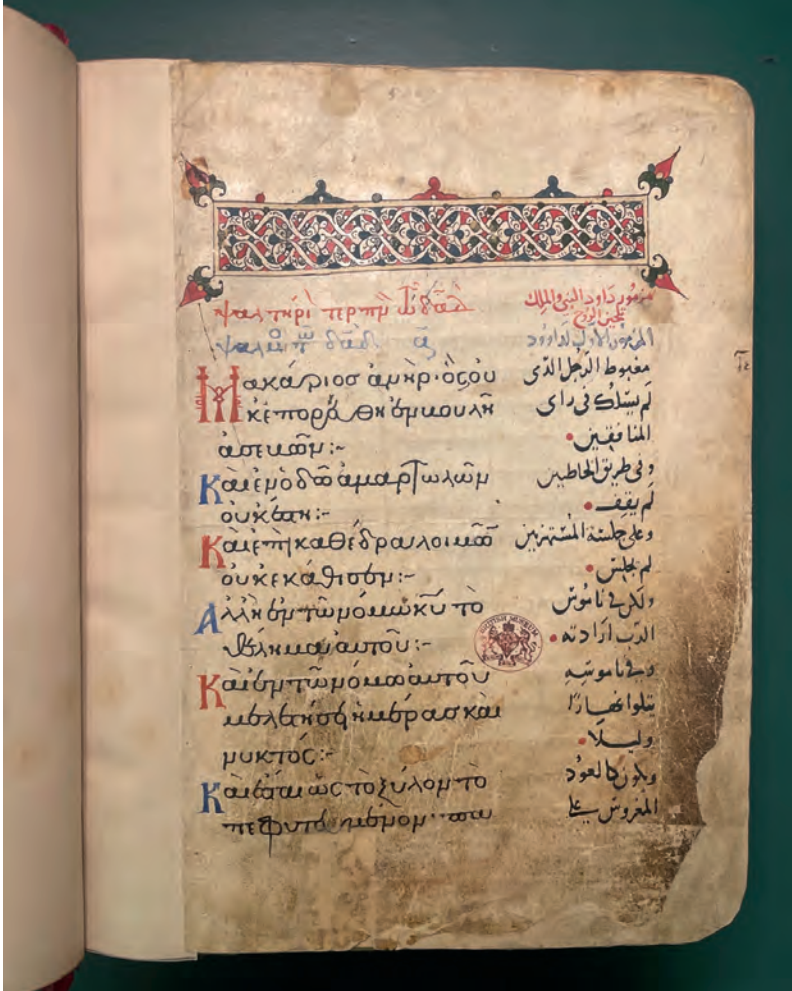 ψαλμὸς τῷ δᾱδ ᾱ
Μακάριος ἀνὴρ· ὃς οὐ
κ ἐπορεύθη ἐν βουλῆ
ἀσεβῶν:-
Καὶ ἐν ὁδῶ ἁμαρτωλῶν
οὐκ ἔστη:-
Καὶ ἐπὶ καθέδρα λοιμῶ
οὐκ ἐκάθισεν:-
Ἀλλ' ἢ ἐν τῶ νόμω κ̅υ̅ τὸ
θέλημα αὐτοῦ:-
Καὶ ἐν τῶ νόμω αὐτοῦ
μελετήσει ἡμέρας καὶ
νυκτός:-
Καὶ ἔσται ὡς τὸ ξύλον τὸ
πεφυτευμένον·
مزمور داود النبي والملك
المزمور الاول لداوود
مغبوط الرجل الذي
لم يسلك في راي
المنافقين.
وفي طريق الخاطيين
لم يقف.
وعلى جلسة المستهزين
لم يجلس.
ولكن في ناموس
الرب ارادته.
وفي ناموسه
يتلوا نهارًا
وليلا.
ويكون كالعود
المغروس على
BRITISH MUSEUM